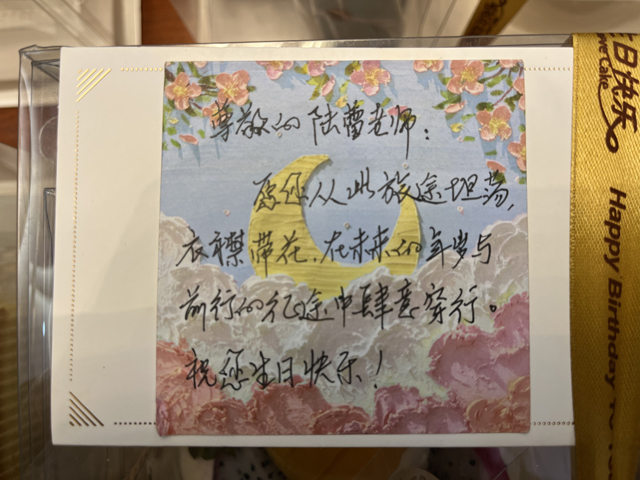 尊敬的陆蕾老师：
愿您从此旅途坦荡，
衣襟带花，在未来的年岁与
前行的征途中肆意穿行。
祝您生日快乐！
日快乐
Love Cake
Happy Birthday To